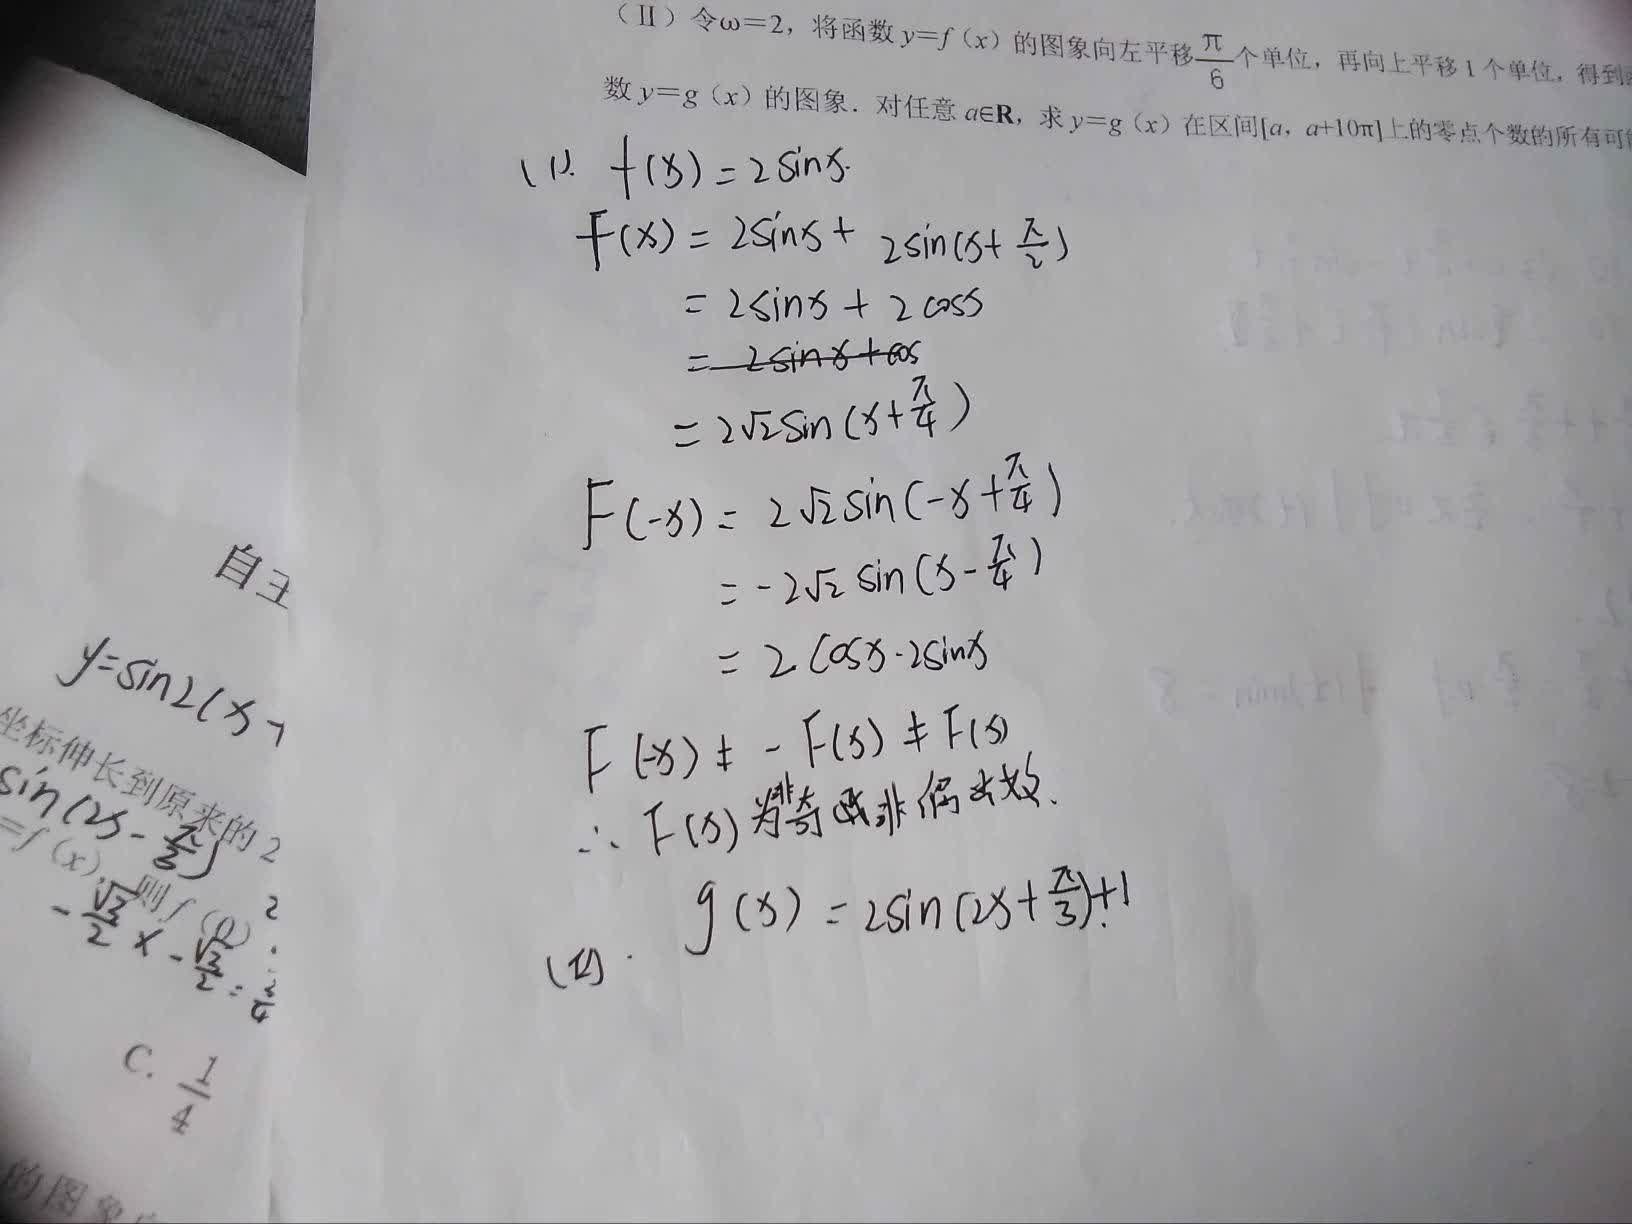 （Ⅱ）令ω＝2，将函数 y＝f（x）的图象向左平移π/6个单位，再向上平移 1 个单位，得到
数 y＝g（x）的图象．对任意 a∈R，求 y＝g（x）在区间[a，a+10π]上的零点个数的所有可
(1). f(x) = 2sinx.
F(x) = 2sinx + 2sin(x+π/2)
= 2sinx + 2cosx
= 2sinx+cos
= 2√2sin(x+π/4)
F(-x) = 2√2sin(-x+π/4)
= -2√2 sin(x-π/4)
= 2cosx-2sinx
F(-x) ≠ -F(x) ≠ F(x)
∴ F(x)为非奇非偶函数.
g(x) = 2sin(2x+π/3)+1.
(Ⅱ).
自主
y=sin2(x+
坐标伸长到原来的 2
sin(2x-π/3)
=f（x），则 f（0）
-√3/2 × -√3/2 = 3/4
C. 1/4
的图象